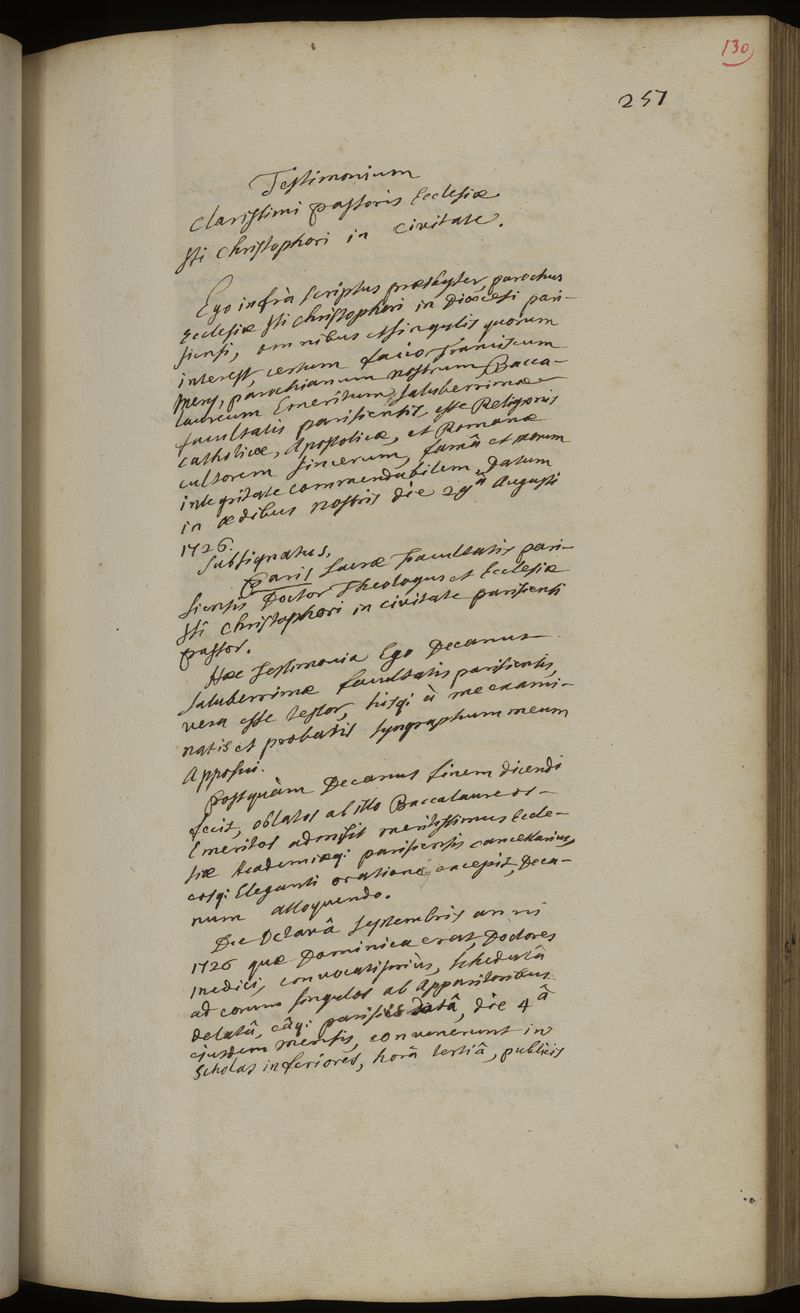 130
257
Testimonium
clarissimi pastoris Ecclesiæ
sti christophori in civitate.
Ego infrà scriptus præsbyter, parochus
Ecclesiæ sti christophori in Diœcesi pari-
siensi, omnibus et singulis quorum
interest, certum facio franciscum
Mery, parochianum nostrum Bacca-
laureum Emeritum saluberrimæ
facultatis parisiensis esse Religionis
catholicæ, Apostolicæ, et Romanæ
cultorem sincerum, famâ et morum
integritate commendabilem, Datum
in ædibus nostris die 29â Augusti
1726.
subsignatus,
Paris sacræ facultatis pari-
siensis Doctor Theologus et Ecclesiæ
sti christophori in civitate parisiensi
pastor.
Hæc testimonia Ego Decanus
saluberrimæ facultatis parisiensis,
vera esse testor, hisq; à me exami-
natis et probatis syngraphum meum
Apposui.
Postquàm Decanus finem dicendi
fecit, oblatos ab illo Baccalaureos
Emeritos admisit meritissimus Eccle-
siæ Academiæq; parisiensis cancellarius,
eosq; Eleganti oratione excepit, Deca-
num alloquendo.
Die Octavâ septembris anni
1726 quæ Dominica erat, Doctores
medici, convocati priùs, schedulâ
ad eorum singulos ab Apparitoribus
delatâ, eâq; parisiis datâ, die 4â
ejusdem mensis, convenerunt in
scholas inferiores, horâ tertiâ, publicis